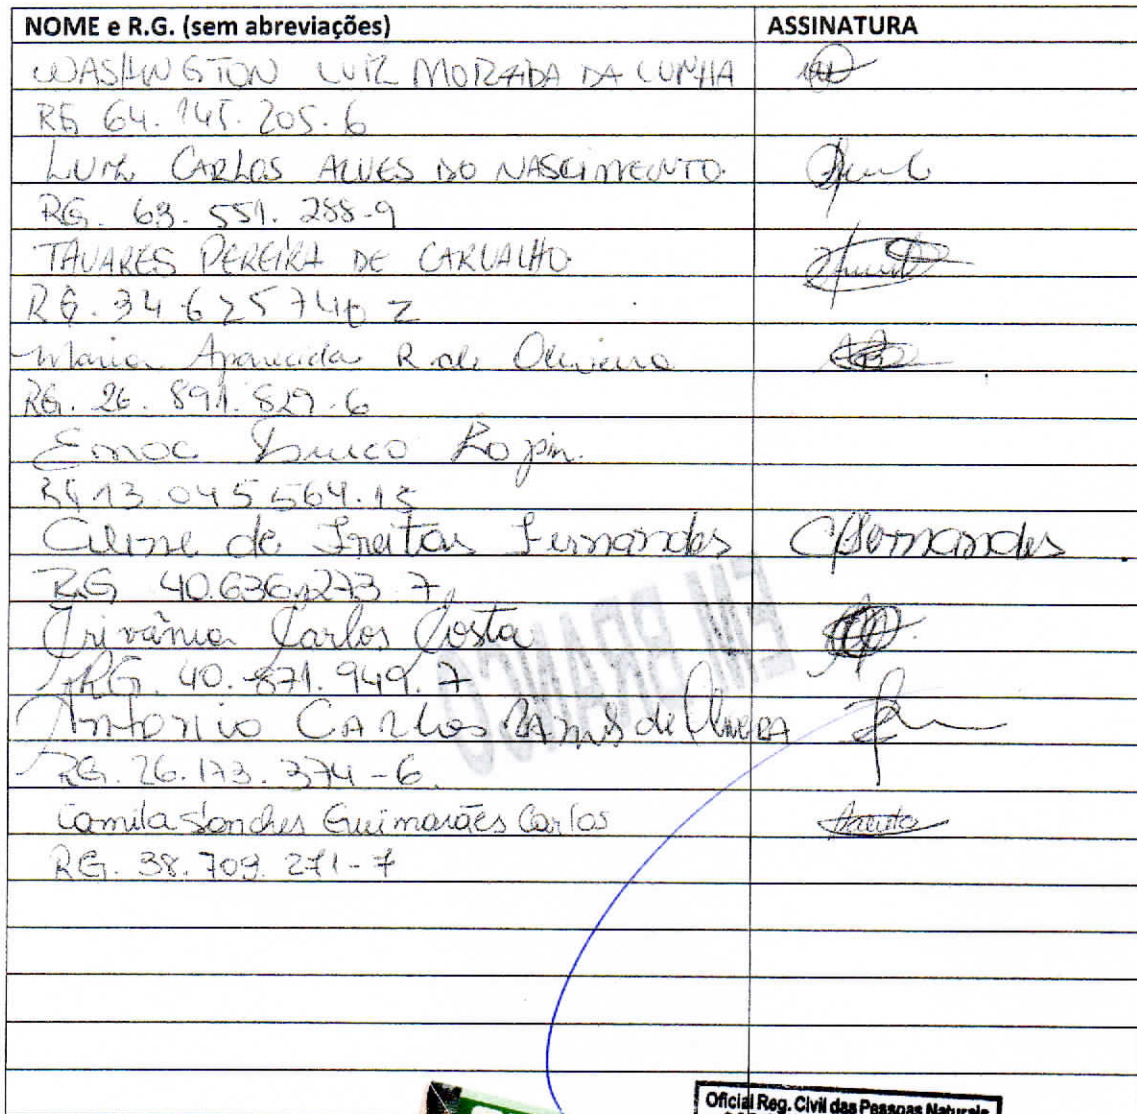 NOME e R.G. (sem abreviações) ASSINATURA
WASHINGTON LUIZ MORZADA DA CUNHA
RG 64.145.205-6
LUIZ CARLOS ALVES DO NASCIMENTO
RG. 63.551.288-9
TAVARES PEREIRA DE CARVALHO
RG. 34 625746 2
Maria Aparecida R. de Oliveira
RG. 26.891.829-6
Enoc
RG 13.045564.15
de Freitas Fernandes CFernandes
RG 40.636.273 7
Carlos Costa
RG. 40.871.949.7
EM BRANCO
Antonio CARLOS RAMOS de OliveiRA
RG. 26.173.374-6
Camila Sanches Guimarães Carlos
RG. 38.709.271-7
Oficial Reg. Civil das Pessoas Naturais